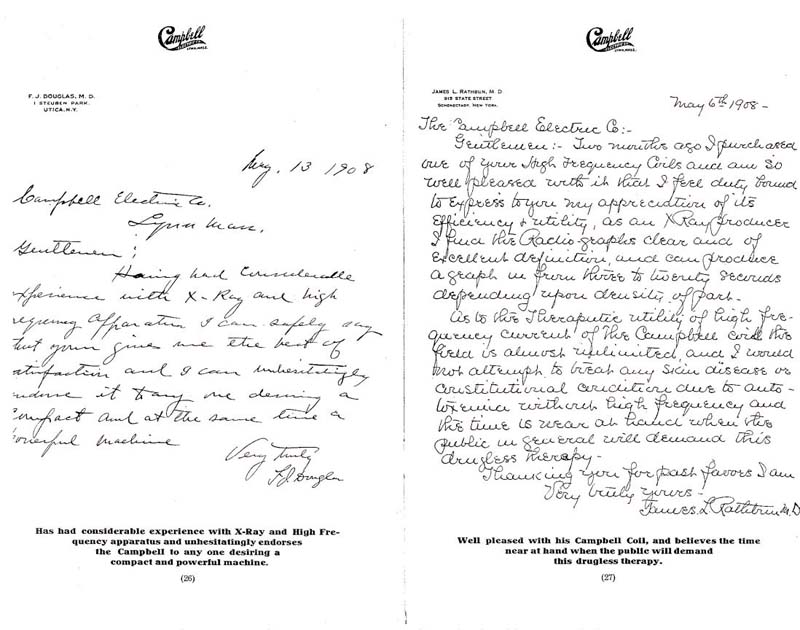 Campbell
ELECTRIC CO.
LYNN, MASS.
F. J. DOUGLAS, M. D.
1 STEUBEN PARK.
UTICA. N.Y.
Aug. 13 1908
Campbell Electric Co.
Lynn Mass.
Gentlemen;
Having had Considerable
xperience with X-Ray and high
requency Apparatus I can safely say
that yours gives me the best of
atisfaction and I can unhesitatingly
ndorse it to any one desiring a
compact and at the same time a
powerful machine
Very truly
F J Douglas
Has had considerable experience with X-Ray and High Fre-
quency apparatus and unhesitatingly endorses
the Campbell to any one desiring a
compact and powerful machine.
(26)
Campbell
ELECTRIC CO.
LYNN, MASS.
JAMES L. RATHBUN, M D
919 STATE STREET
SCHENECTADY, NEW YORK.
May 6th 1908-
The Campbell Electric Co:-
Gentlemen:- Two months ago I purchased
one of your High Frequency Coils and am so
well pleased with it that I feel duty bound
to Express to you my appreciation of its
Efficiency & utility, as an X Ray producer
I find the Radiographs clear and of
Excellent definition, and can produce
a graph in from three to twenty seconds
depending upon density of part.
As to the Theraputic utility of high fre-
quency current of the Campbell coil the
field is almost unlimited, and I would
not attempt to treat any skin disease or
constitutional condition due to auto-
toxemia without high frequency and
the time is near at hand when the
public in general will demand this
drugless therapy-
Thanking you for past favors I am
Very truly yours-
James L Rathbun M.D
Well pleased with his Campbell Coil, and believes the time
near at hand when the public will demand
this drugless therapy.
(27)